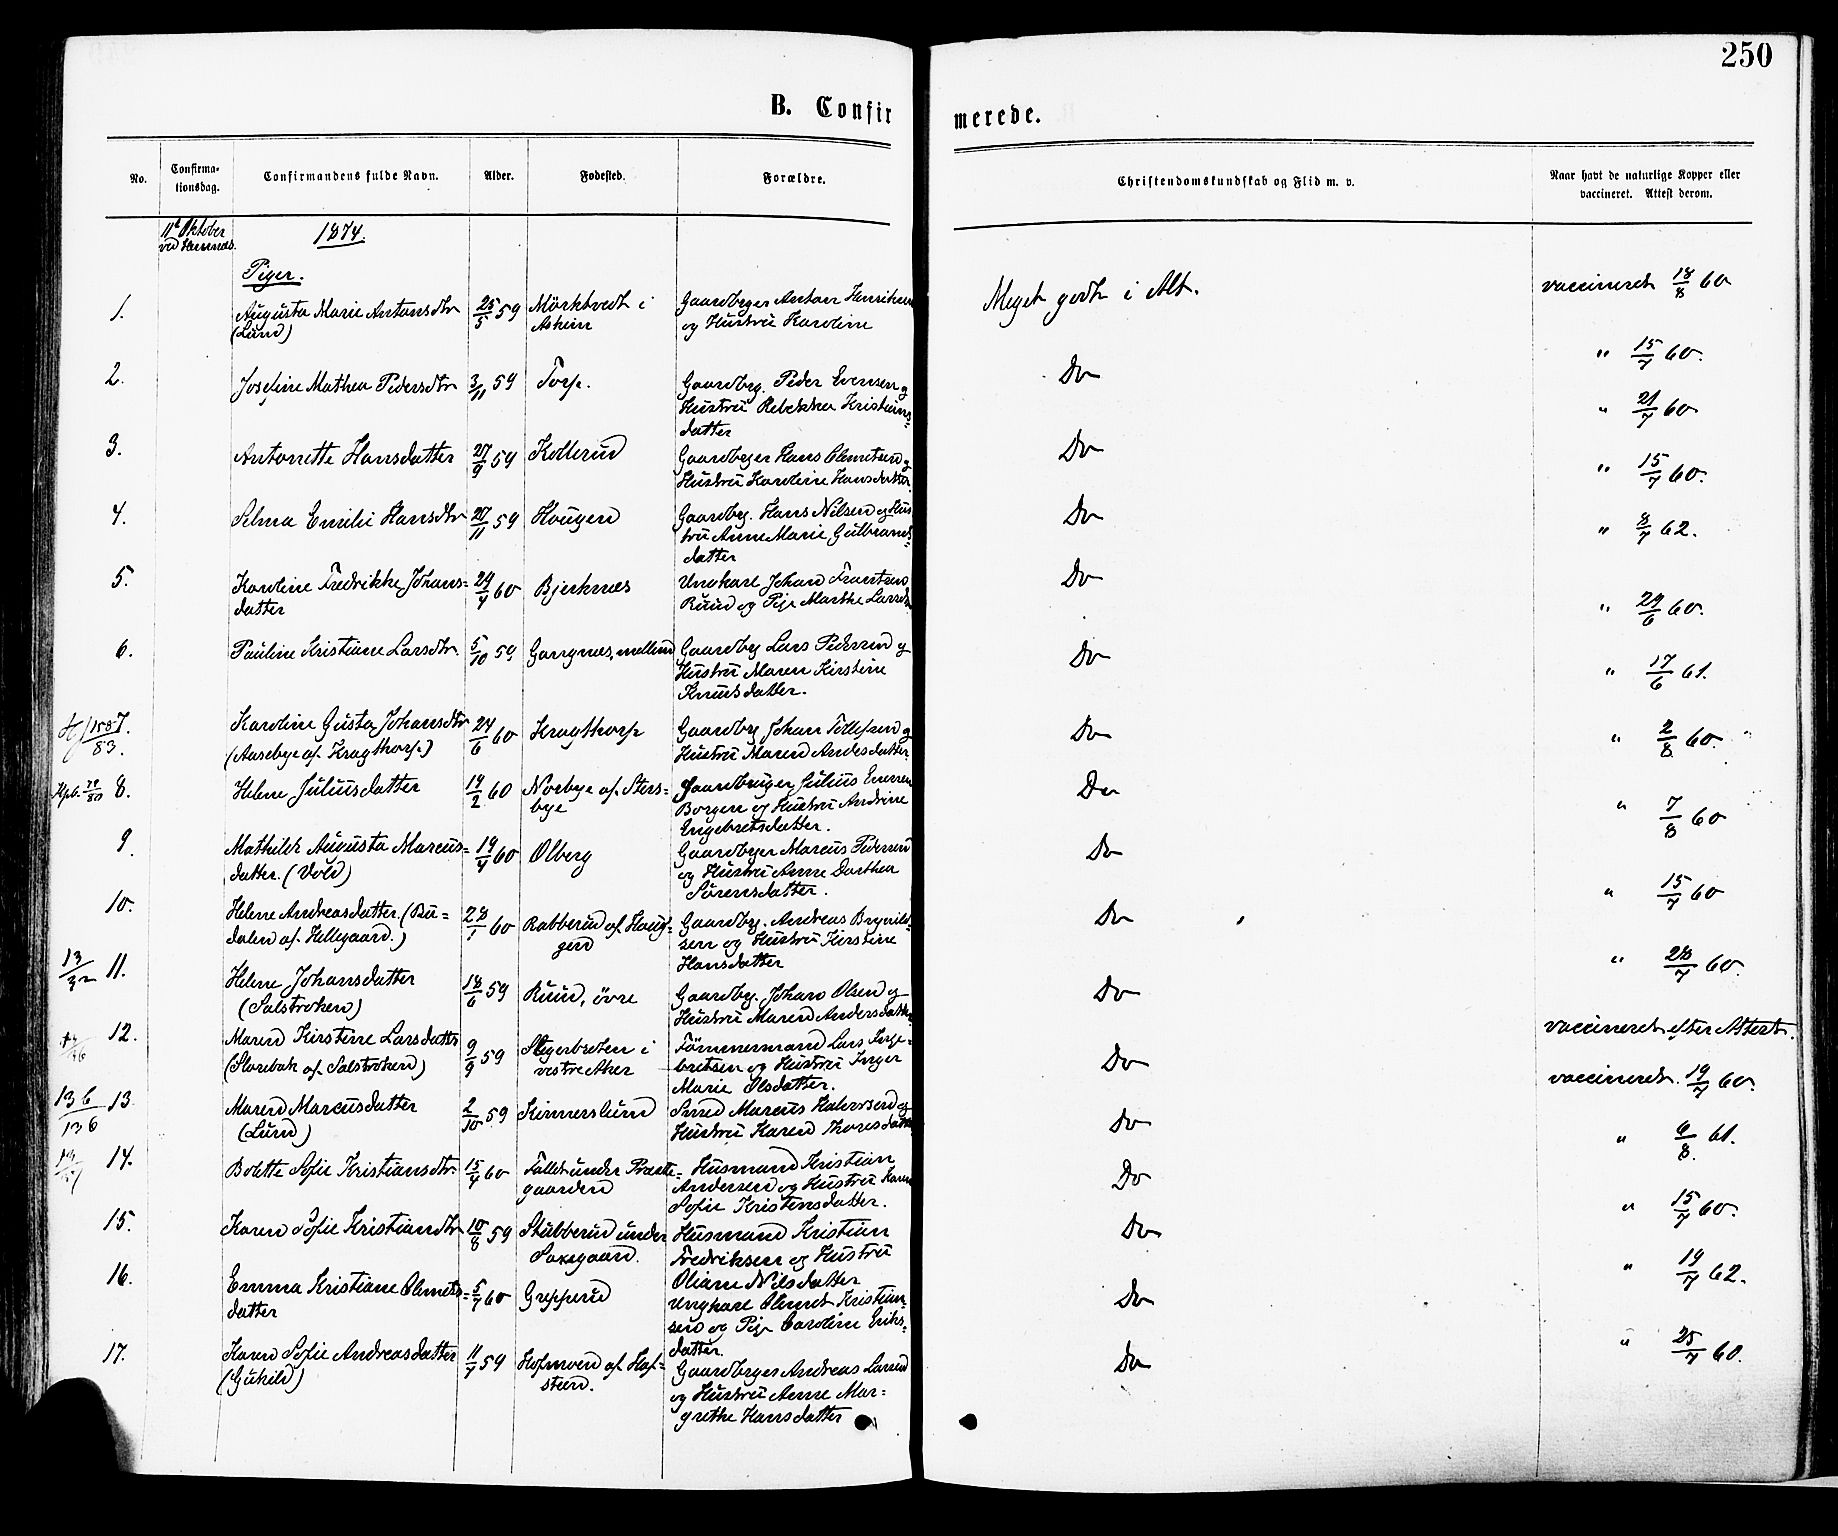 250
B. Confirmerede.
No.
Confirmationsdag.
Confirmandens fulde Navn.
Alder.
Fødested.
Forældre.
Christendomskundskab og Flid m. v.
Naar havt de naturlige Kopper eller
vaccineret. Attest derom.
11te Oktober
ved Hemnæs.
1874.
Piger.
1. Augusta Marie Antonsdtr
(Lund)
25/5 59
Mørktvedt i
Askim
Gaardbruger Anton Henriksen
og Hustru Karoline
Meget godt i Alt.
vaccineret 18/8 60
2. Josefine Mathea Pedersdtr
3/11 59
Torp.
Gaardbrg. Peder Evensen og
Hustru Rebekka Kristians=
datter
Do
" 15/7 60.
3. Antonette Hansdatter
27/9 59
Kollerud
Gaardbrger Hans Olmutsen og
Hustru Karoline Hansdatter
Do
" 21/7 60
4. Selma Emilie Hansdtr
27/11 59
Hougen
Gaardbrg. Hans Nilsen og Hus
tru Anne Marie Gulbrands=
datter
Do
" 15/7 60.
5. Karoline Fredrikke Johans=
datter
24/4 60
Bjerknæs
Ungkarl Johan Frantzen
Ruud og Pige Marthe Larsdr
Do
" 8/7 62.
6. Pauline Kristiane Larsdtr.
5/10 59
Gangnæs, mellem
Gaardbrg Lars Pedersen og
Hustru Maren Kirstine
Knutsdatter.
Do
" 29/6 60.
7. Karoline Gusta Johansdtr
(Aasebye af Kragthorp)
24/6 60
Kragthorp
Gaardbrg Johan Tollefsen og
Hustru Maren Andersdatter
Do
" 17/6 61.
8. Helene Juliusdatter
19/2 60
Norbye af Stens=
bye
Gaardbruger Julius Evensen
Borgen og Hustru Andrine
Engebretsdatter.
Do
" 2/8 60.
9. Mathilde Augusta Marcus=
datter. (Vold)
19/4 60
Olberg
Gaardbrger Marcus Pedersen
og Hustru Anne Dorthea
Sørensdatter.
Do
" 7/8 60
10. Helene Andreasdatter (Bu=
dalen af Hellegaard.)
28/1 60
Rabberud af Haug=
gen
Gaardbrg. Andreas Brynild=
sen og Hustru Kirstine
Hansdatter
Do
" 15/7 60
11. Helene Johansdatter
(Solstroken)
18/6 59
Ruud, övre
Gaardbrg. Johan Olsen og
Hustru Maren Andersdatter
Do
" 28/7 60.
12. Maren Kirstine Larsdatter
(Storebak af Solstroken)
9/9 59
Slegerbroten i
vestre Aker
Tømmermand Lars Inge=
bretsen og Hustru Inger
Marie Olsdatter.
Do
vaccineret efter Attest.
13. Maren Marcusdatter
(Lund)
2/10 59
Kinnerslund
Smed Marcus Halvorsen og
Hustru Karen Thoresdatter
Do
vaccineret 19/7 60.
14. Bolette Sofie Kristiansdtr.
15/4 60
Fallet under Præste=
gaarden
Husmand Kristian
Andersen og Hustru Karen
Sofie Kristensdatter.
Do
" 6/8 61.
15. Karen Sofie Kristiandtr
10/8 59
Stubberud under
Saxegaard.
Husmand Kristian
Fredriksen og Hustru
Oliane Nilsdatter
Do
" 15/7 60.
16. Emma Kristiane Olmuts=
datter
5/7 60
Grepperud
Ungkarl Olmut Kristian=
sen og Pige Caroline Eriks=
datter.
Do
" 19/7 62.
17. Karen Sofie Andreasdatter
(Guhild)
11/7 59
Hofmoen af Haf=
steen.
Gaardbrger Andreas Larsen
og Hustru Anne Mar=
grethe Hansdatter
Do
" 25/7 60.